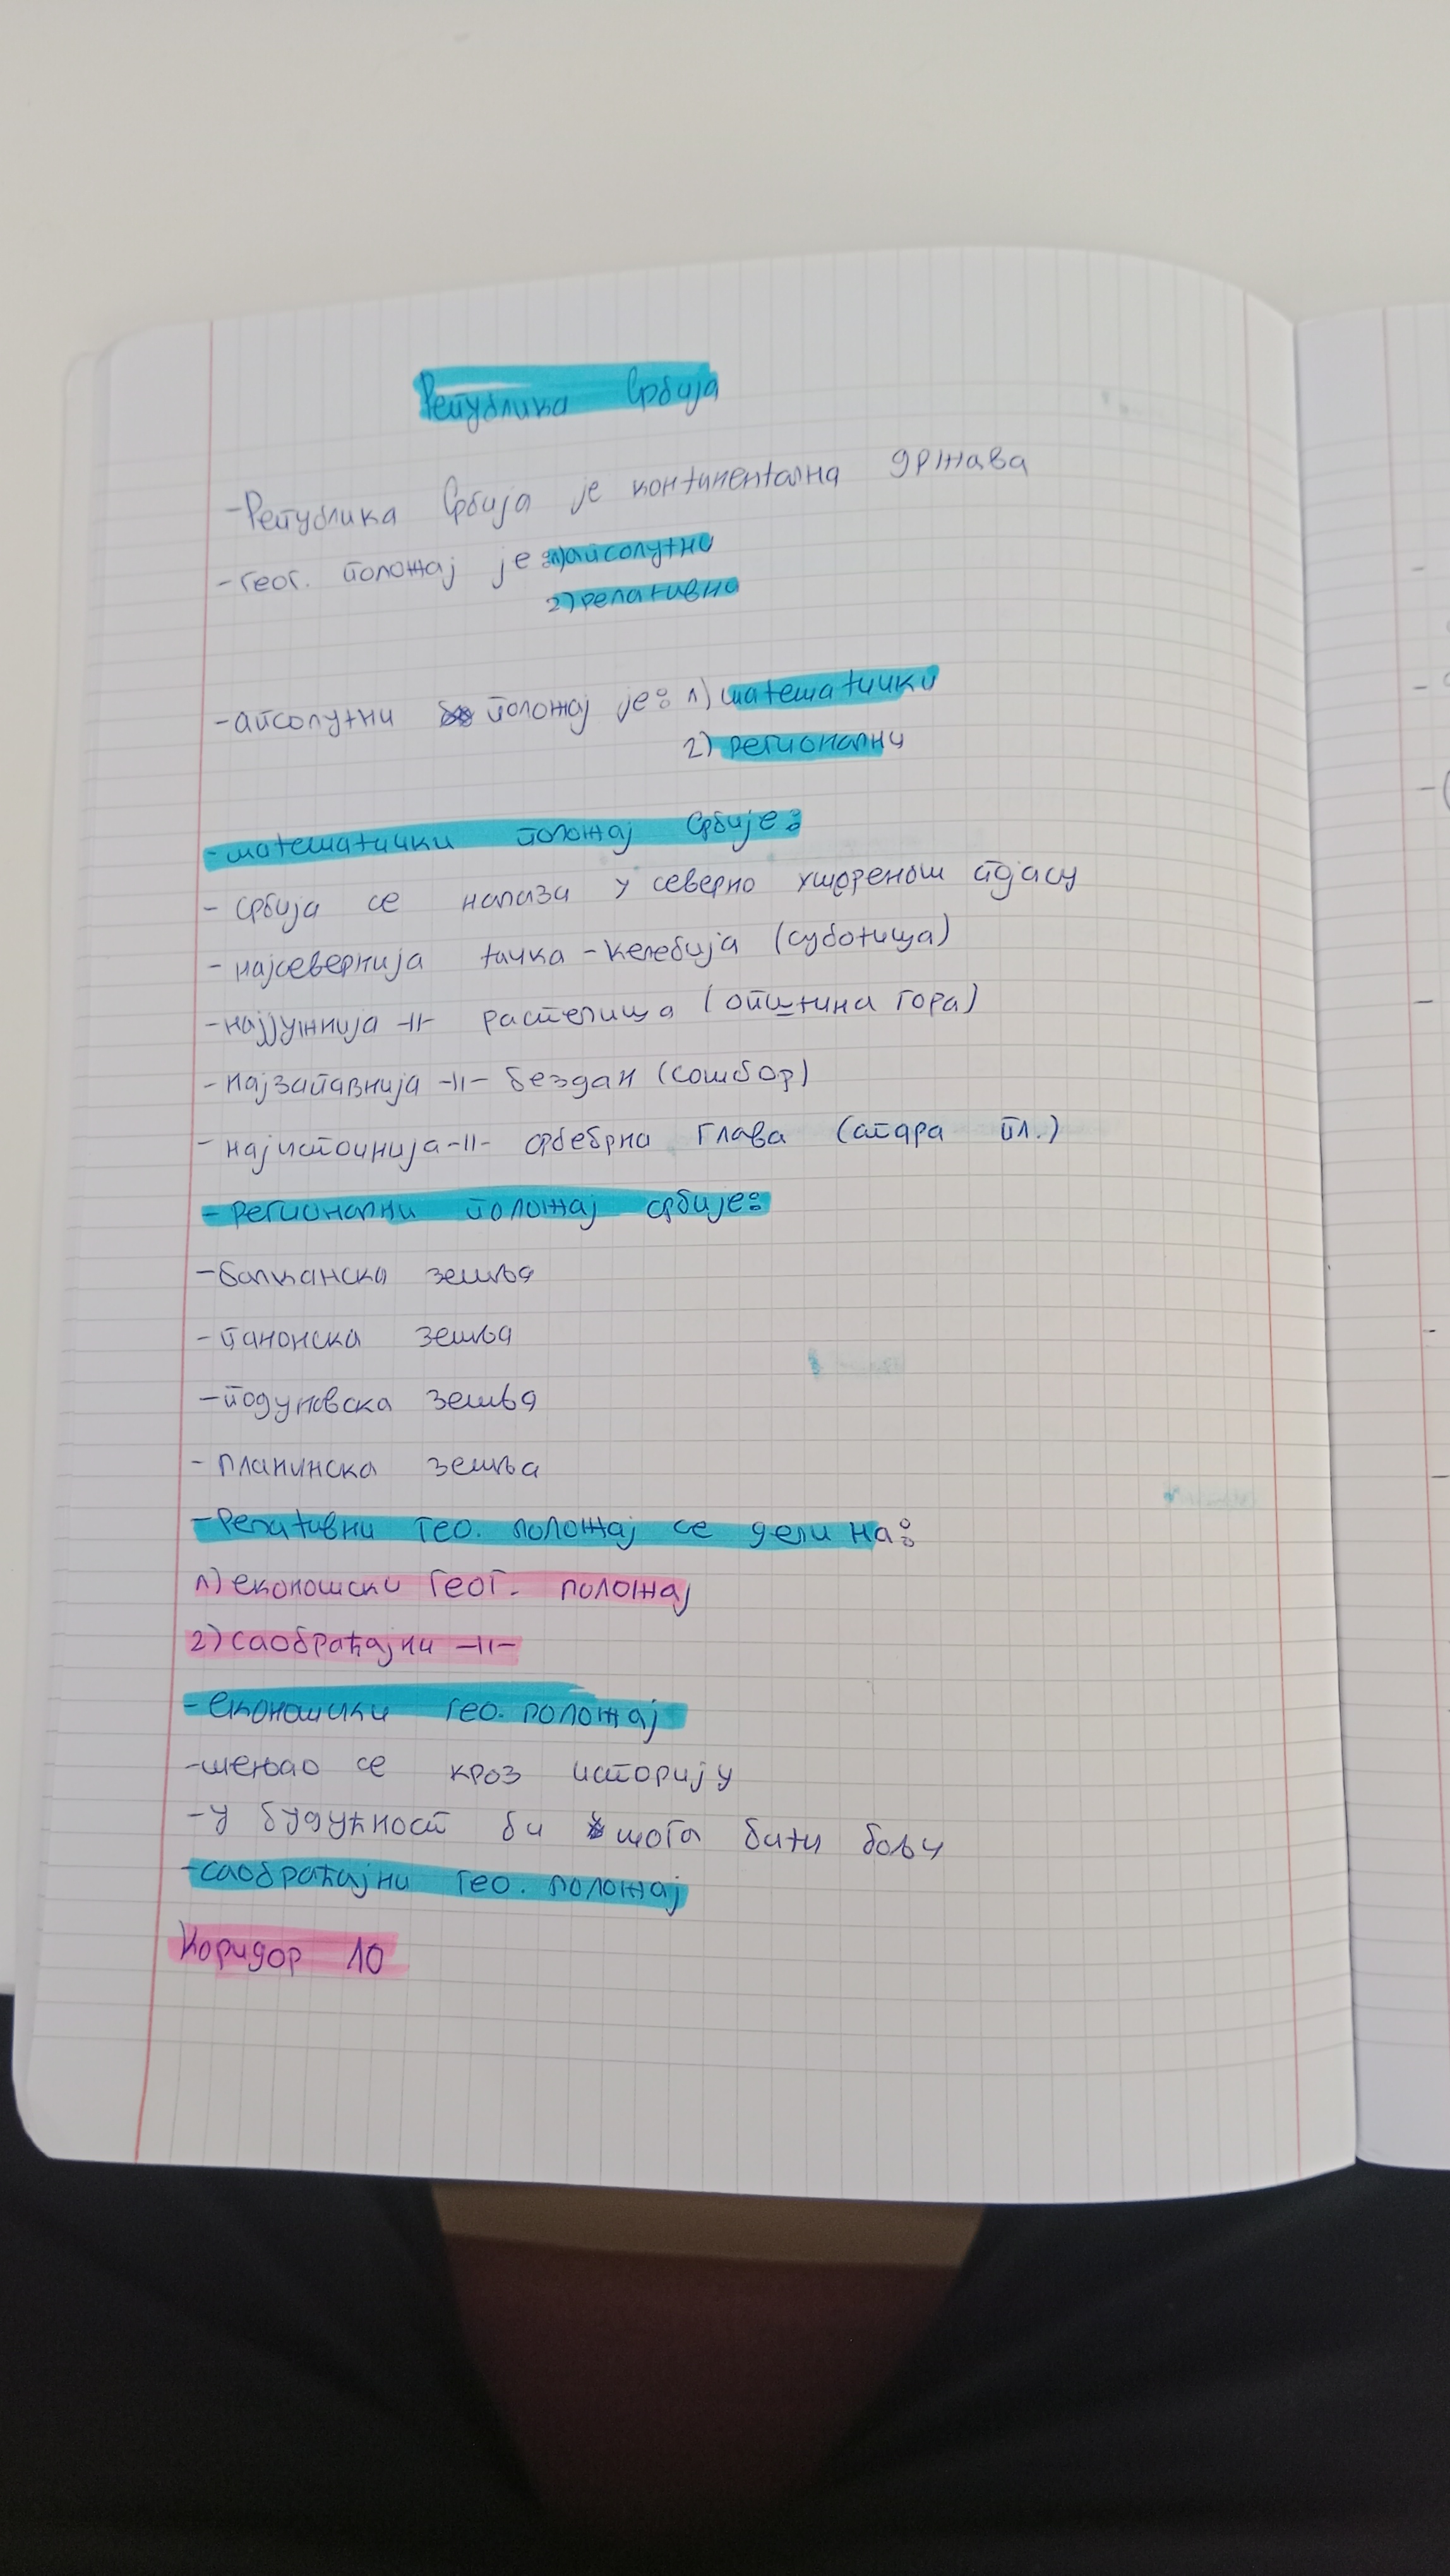 Република Србија
-Република Србија је континентална држава
-геог. положај је:1)апсолутни
2)релативни
-апсолутни положај је: 1) математички
2) регионални
-математички положај Србије:
- Србија се налази у северно умереном појасу
- најсевернија тачка - Келебија (суботица)
-најјужнија -||- рестелица (општина гора)
-најзападнија -||- бездан (сомбор)
-најисточнија -||- србебрна глава (стара пл.)
- регионални положај србије:
-балканска земља
-панонска земља
-подунавска земља
- планинска земља
-Релативни гео. положај се дели на:
1) економски геог. положај
2) саобраћајни -||-
-економски гео. положај
-мењао се кроз историју
-у будућност би мога бити бољи
-саобраћајни гео. положај
Коридор 10